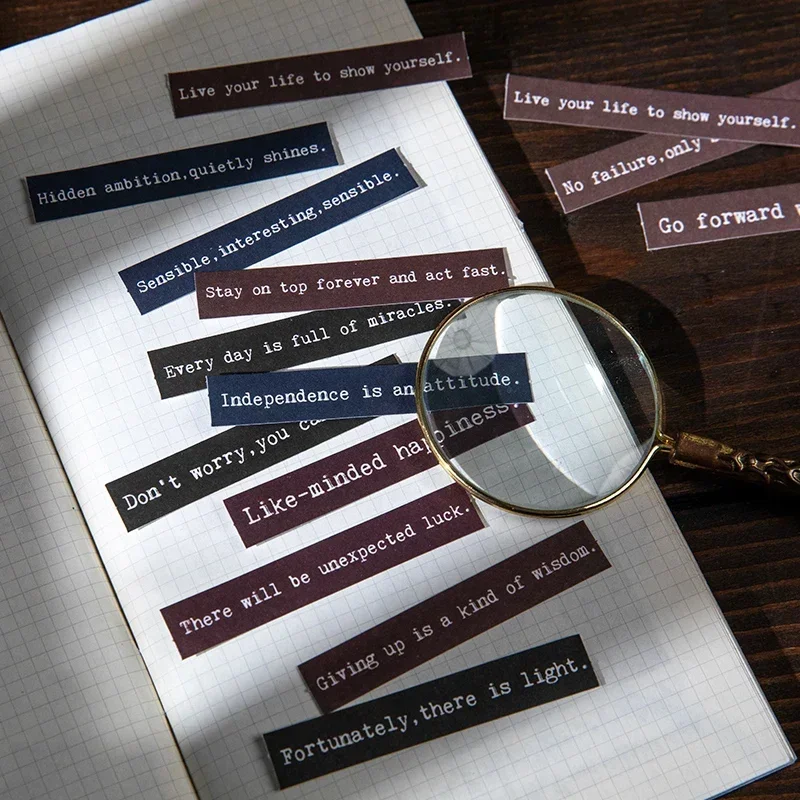 Live your life to show yourself.
Live your life to show yourself.
No failure,only
Go forward
Hidden ambition,quietly shines.
Sensible,interesting,sensible.
Stay on top forever and act fast.
Every day is full of miracles.
Independence is an attitude.
Don't worry,you
Like-minded happiness.
There will be unexpected luck.
Giving up is a kind of wisdom.
Fortunately,there is light.